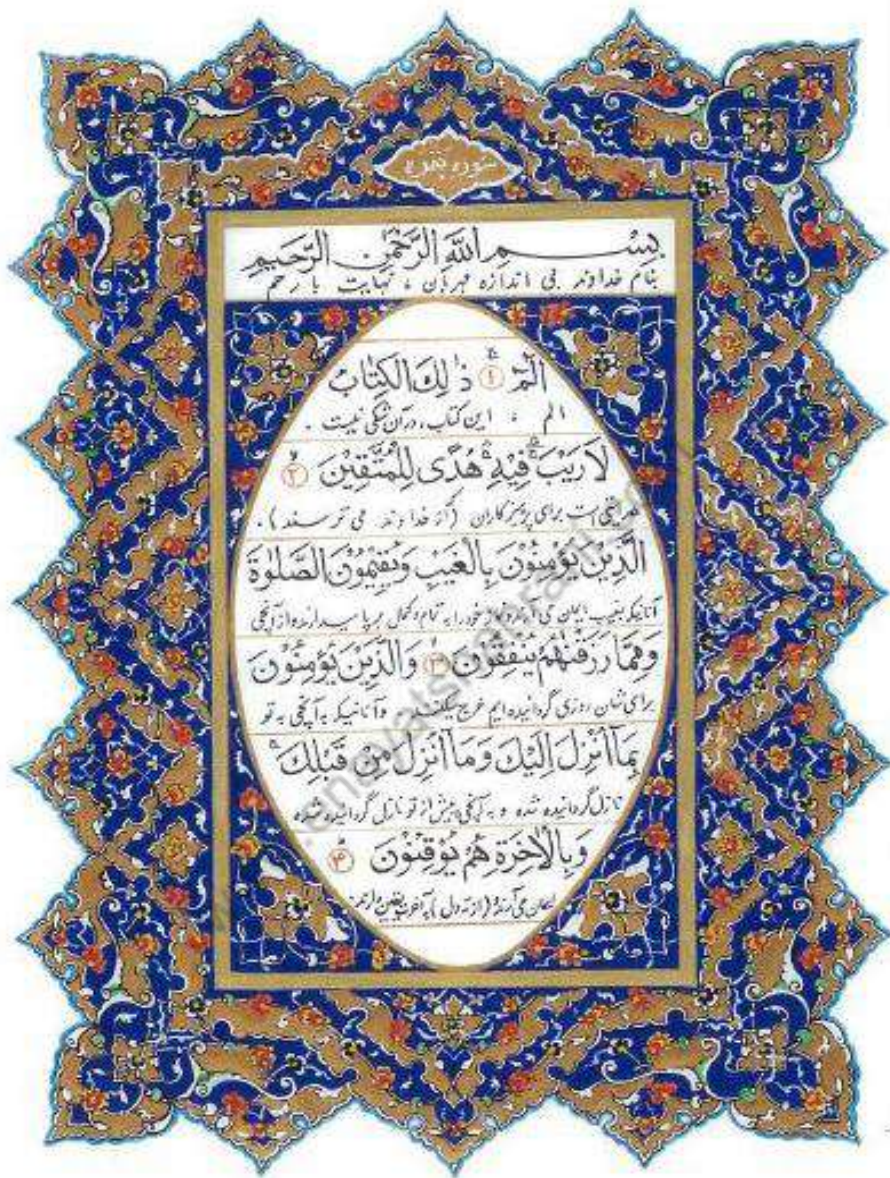 سوره بقره
بِسْمِ اللَّهِ الرَّحْمٰنِ الرَّحِيمِ
بنام خداوند بی اندازه مهربان ، نهایت با رحم
الٓمّٓ ۚ ١ ذٰلِكَ الْكِتٰابُ
الم ، این کتاب، در آن شکی نیست .
لَا رَيْبَ ۛ فِيْهِ ۛ هُدًى لِلْمُتَّقِيْنَ ٢
است برای پرهیزکاران (که از خداوند می ترسند) .
الَّذِيْنَ يُؤْمِنُوْنَ بِالْغَيْبِ وَيُقِيْمُوْنَ الصَّلٰوةَ
آنانیکه بغیب ایمان می آرند و نماز خود را به تمام و کمال بر پا میدارند و از آنچی
وَمِمَّا رَزَقْنٰهُمْ يُنْفِقُوْنَ ٣ وَالَّذِيْنَ يُؤْمِنُوْنَ
برای شان روزی گردانیده ایم خرج میکنند وآنانیکه به آنچی به تو
بِمَاۤ اُنْزِلَ اِلَيْكَ وَمَاۤ اُنْزِلَ مِنْ قَبْلِكَ ۚ
نازل گردانیده شده و به آنچی پیش از تو نازل گردانیده شده
وَبِالْاٰخِرَةِ هُمْ يُوْقِنُوْنَ ٤
ایمان می آرند (از ته دل) به آخرت یقین دارند